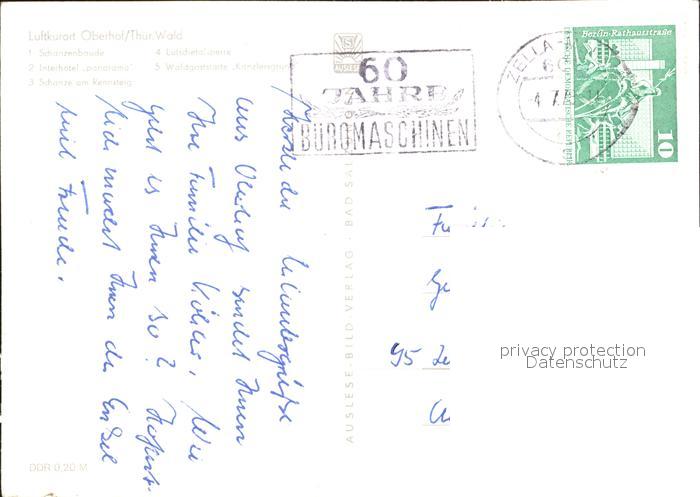 Luftkurort Oberhof/Thür.Wald
1 Schanzenbaude
2 Interhotel „panorama"
3 Schanze am Rennsteig
4 Lutscheta
5 Waldgaststätte „Kanzlersgrund
60
JAHRE
BÜROMASCHINEN
ZELLA-
Berlin-Rathausstraße
10
Herzliche Urlaubsgrüße
aus Oberhof sendet Ihnen
Ihre Familie Köhler. Wie
geht es Ihnen so? Hoffent-
lich macht Ihnen der Enkel
viel Freude.
AUSLESE-BILD-VERLAG · BAD SAL
95
privacy protection
Datenschutz
DDR 0,20 M